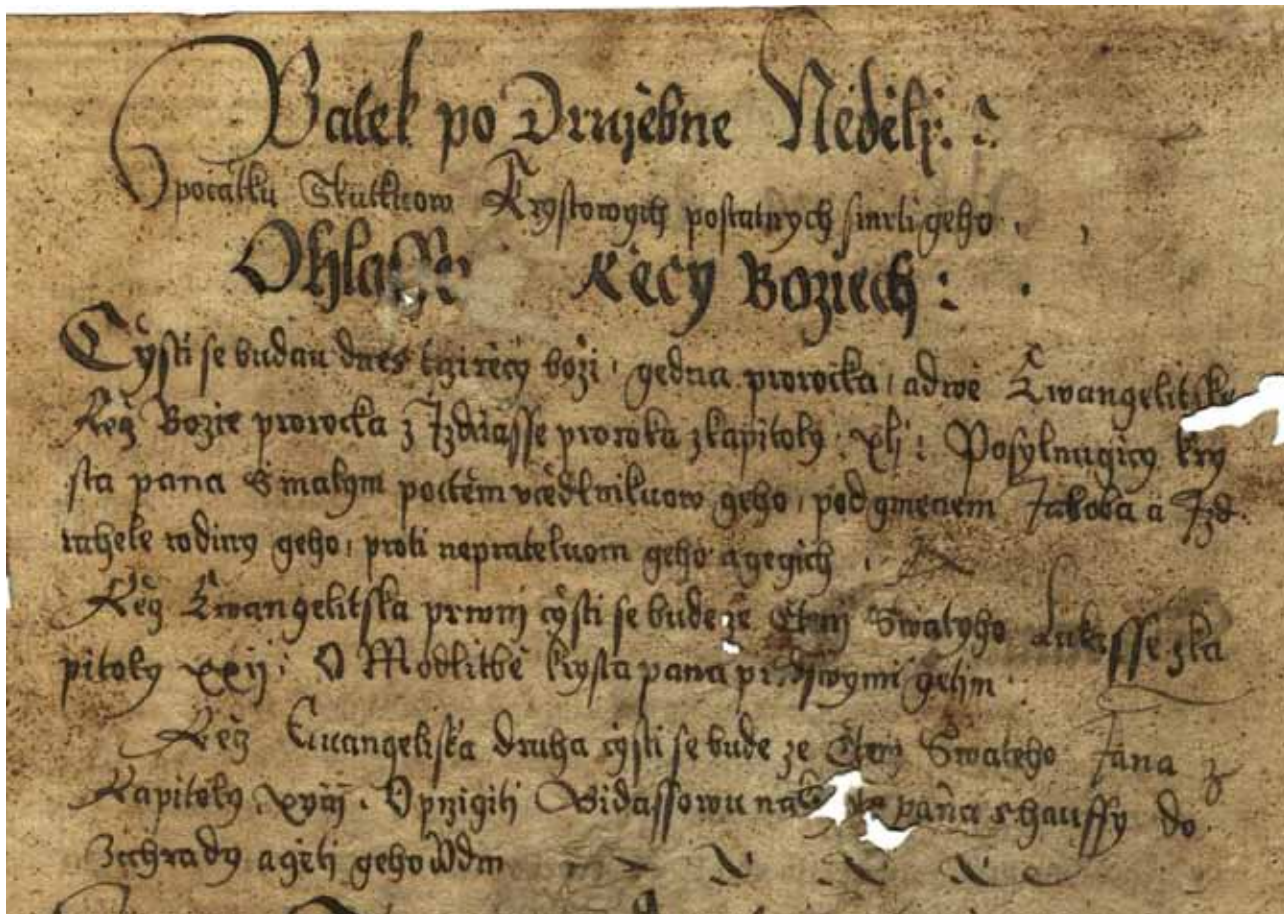 Patek po Družebne Neděly
O počatku Skutkuow Krystowych postatnych smrti geho
Ohla Ržecy Boziech
Cžysti se budau dnes tři řečy boži, gedna prorocka, a dwě Ewangelitske
Ržeč Bozie prorocka z Izaiasse proroka z kapitoly xlj Posylnugicy kry
sta pana s malym počtem včedlnikuow geho, pod gmenem Jakoba a Izd
rahele rodiny geho, proti neprateluom geho a gegich
Ržeč Ewangelitska prwnj cžysti se bude ze čtenj Swatyho Lukasse z ka
pitoly xxij O Modlitbě krysta pana před getim
Ržeč Ewangeliska druha cžysti se bude ze čtenj Swateho Jana z
Kapitoly xviij O przigiti Gidassowu na pana s hauffy do
Zachrady a geti geho